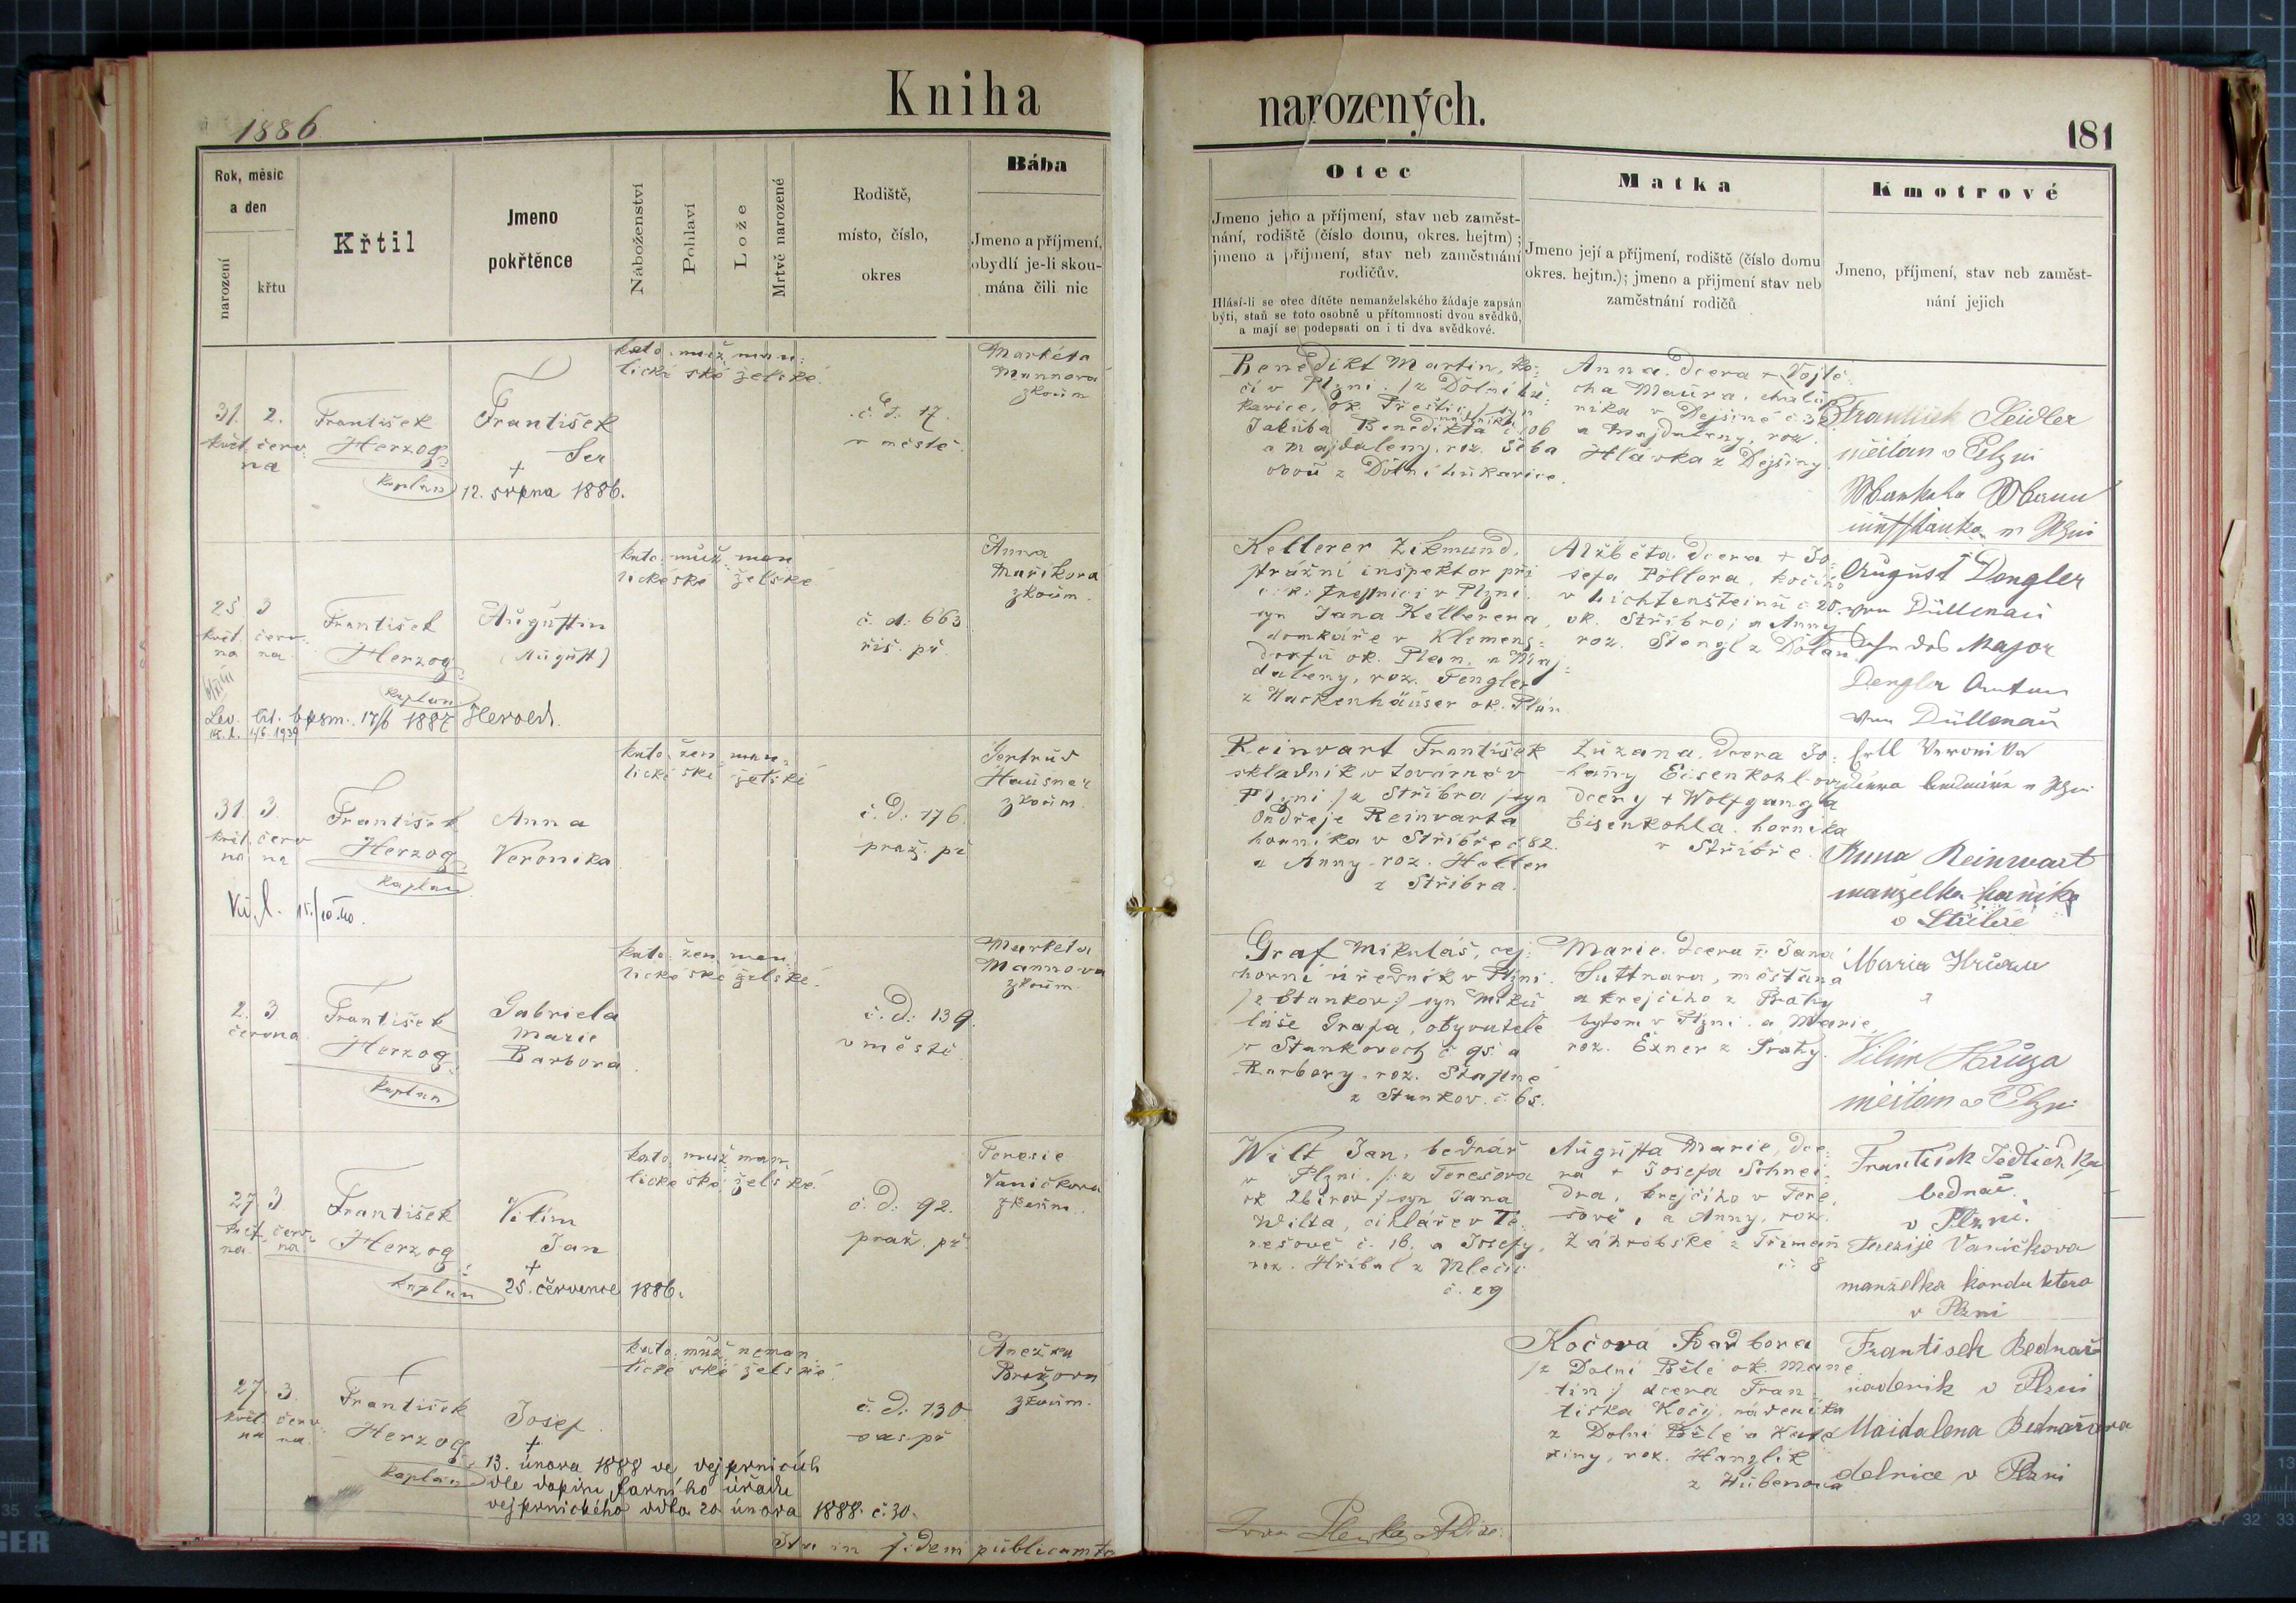 Kniha
narozených.
1886
181
Rok, měsíc
a den
narození
křtu
Křtil
Jmeno
pokřtěnce
Náboženství
Pohlaví
Lože
Mrtvě narozené
Rodiště,
místo, číslo,
okres
Bába
Jmeno a příjmení,
obydlí je-li skou-
mána čili nic
Otec
Jmeno jeho a příjmení, stav neb zaměst-
nání, rodiště (číslo domu, okres. hejtm) ;
jmeno a příjmení, stav neb zaměstnání
rodičův.
Hlásí-li se otec dítěte nemanželského žádaje zapsán
býti, staň se toto osobně u přítomnosti dvou svědků,
a mají se podepsati on i ti dva svědkové.
Matka
Jmeno její a příjmení, rodiště (číslo domu
okres. hejtm.); jmeno a příjmení stav neb
zaměstnání rodičů
Kmotrové
Jmeno, příjmení, stav neb zaměst-
nání jejich
31. 2.
květ. červ.
na
František
Herzog
kaplan
František
Ser.
+
12. srpna 1886.
kato. muž. man.
lické ské želské.
č. d. 17.
v městě.
Markéta
Mannová
zkoum
Benedikt Martin, ko-
čí v Plzni. /z Dolní Lu-
kavice, ok. Přeštic/ syn
Jakuba Benedikta č. 106
a Majdaleny, roz. Šeba
obou z Dolní Lukavice.
Anna, dcera + Vojtě-
cha Maura, chalup-
níka v Dejšině č. 32
a Majdaleny, roz.
Hlávka z Dejšiny.
František Seidler
měšťan v Plzni
25 3
květ. červ.
na na
František
Herzog
kaplan
Augustin
(August)
kato. muž. man.
lické ské želské
č. d. 663
říš. př.
Anna
Maříková
zkoum.
Kellerer Zikmund,
strážní inspektor při
v Plzni.
syn Jana Kellerera,
domkáře v Klemens-
dorfu ok. Plan. a Maj-
daleny, roz. Fengler
z Hackenhäuser ok. Plán
Alžběta, dcera + Jo-
sefa Pöllera, kočího
v Lichtensteinu č 25.
ok. Stříbro; a Anny
roz. Stengl z Dolan
August Dengler
von Düllenau
Major
Dengler Anton
von Düllenau
1887 Herold.
31. 3.
květ. červ
na na
František
Herzog
kaplan
Anna
Veronika
kato. žen. man.
lické ské želské
č. d. 176.
praž. př
Gertrud
Hausner
zkoum.
Reinvart František
skladník v továrně v
Plzni /z Stříbra/ syn
Ondřeje Reinvarta
horníka v Stříbře č 82.
a Anny roz. Heller
z Stříbra.
Zuzana, dcera Jo-
hany Eisenkohl ové
dcery + Wolfganga
Eisenkohla. horníka
v Stříbře.
Ertl Veronika
Anna Reinwart
manželka horníka
v Stříbře
2. 3
června
František
Herzog
kaplan
Gabriela
Marie
Barbora
kato. žen. man.
lické ské želské.
č. d. 139.
v městě.
Marketa
Mannova
zkoum.
Graf Mikuláš, cej-
chovní úředník v Plzni.
/z Stankov:/ syn Miku-
láše Grafa, obyvatele
v Stankovech č 95. a
Barbory roz. Šťastné
z Stankov. č. 65.
Marie, dcera + Jana
Suttnara, měšťana
a krejčího z Prahy
bytem v Plzni. a Marie
roz. Exner z Prahy.
Maria
Vilém Hruza
měšťan v Plzni
27. 3
květ. červ.
na na.
František
Herzog
kaplan
Vilím
Jan
+
25. července 1886.
kato. muž. man.
lické ské želské.
č. d. 92.
praž. př.
Teresie
Vaníčkova
zkoum.
Wilt Jan, bednář
v Plzni. /z Terešova
ok Zbirov:/ syn Jana
Wilta, cihláře v Te-
rešově č. 16. a Josefy,
roz. Hříbal z Mlečic
č. 29
Augusta Marie, dce-
ra + Josefa Schnei-
dra, krejčího v Tere-
šově, a Anny, roz.
Záhrobské z Třiman
č. 8
František Jedlička
bednář
v Plzni.
Terezije Vaničkova
manželka konduktera
v Plzni
27. 3.
květ. červ.
na na.
František
Herzog
kaplan
Josef
+
13. února 1888 ve vejprnicích
dle dopisu farního úřadu
vejprnického ddto. 20 února 1888. č. 30.
kato. muž. neman.
lické ské želské.
č. d. 130
sas. př
Anežka
Brožová
zkoum.
Kočová Barbora
/z Dolní Bělé ok. Mane-
tín/ dcera Fran-
tiska Kočý, nádeníka
z Dolní Bělé a Kate-
řiny, roz. Hanzlík
z Hubenova
Frantisek Bednař
nadenik v Plzni
Maidalena Bednařova
delnice v Plzni
Ita in fidem publicam to